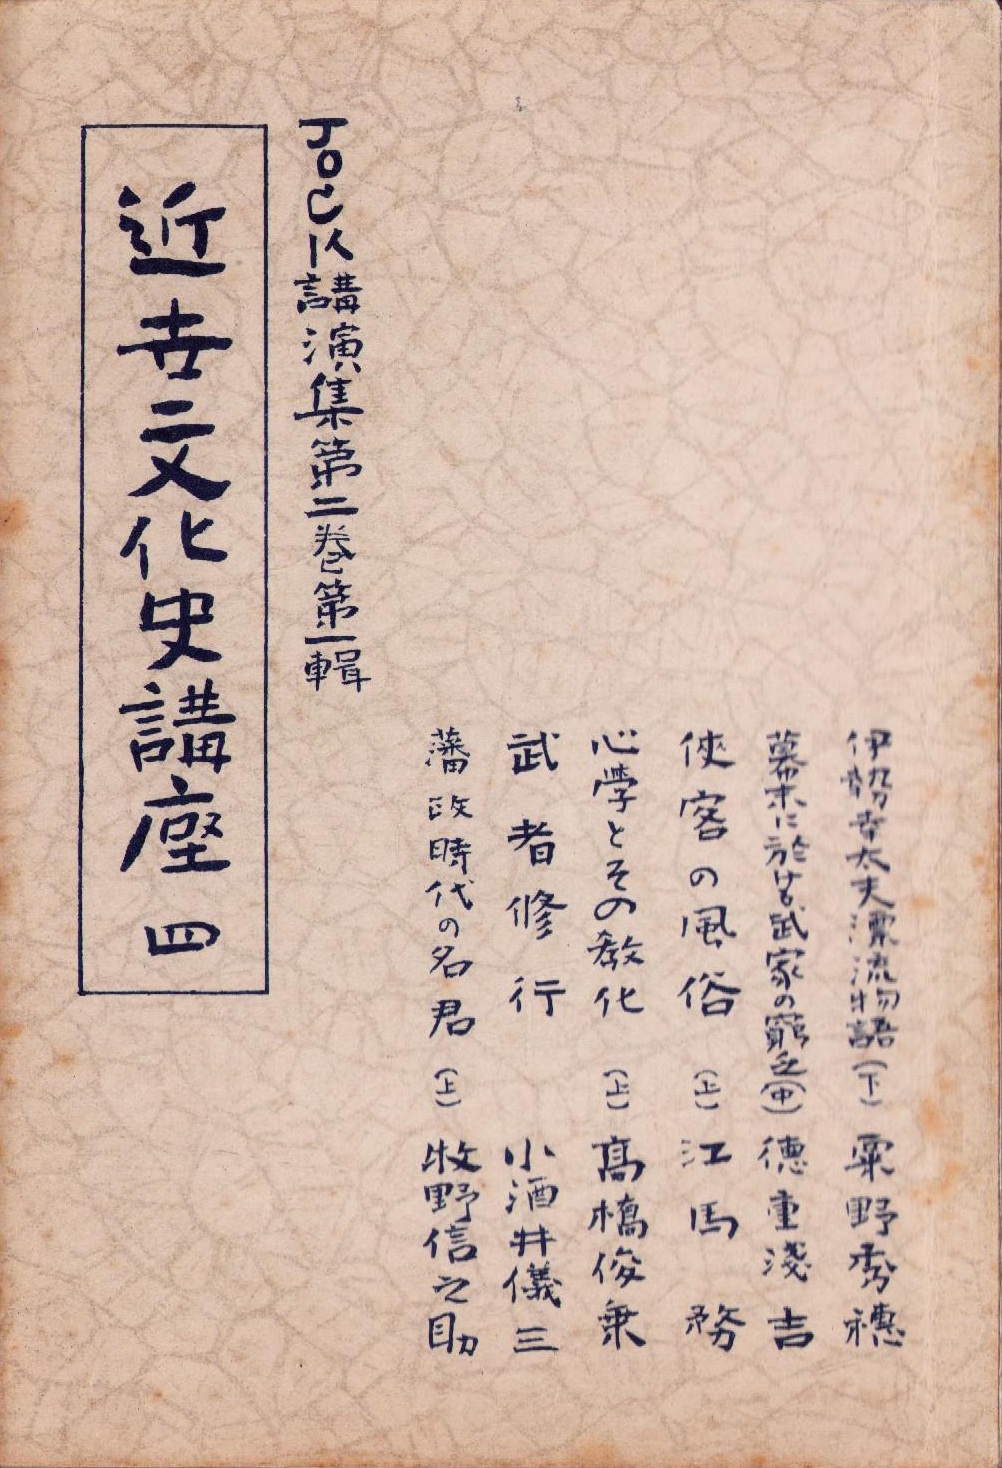 伊勢幸太夫漂流物語(下) 粟野秀穂
幕末に於ける武家の窮乏(中) 德重淺吉
俠客の風俗(上) 江馬務
心學とその教化(上) 髙橋俊乗
武者修行 小酒井儀三
藩政時代の名君(上) 牧野信之助
JOCK講演集第二巻第一輯
近世文化史講座 四